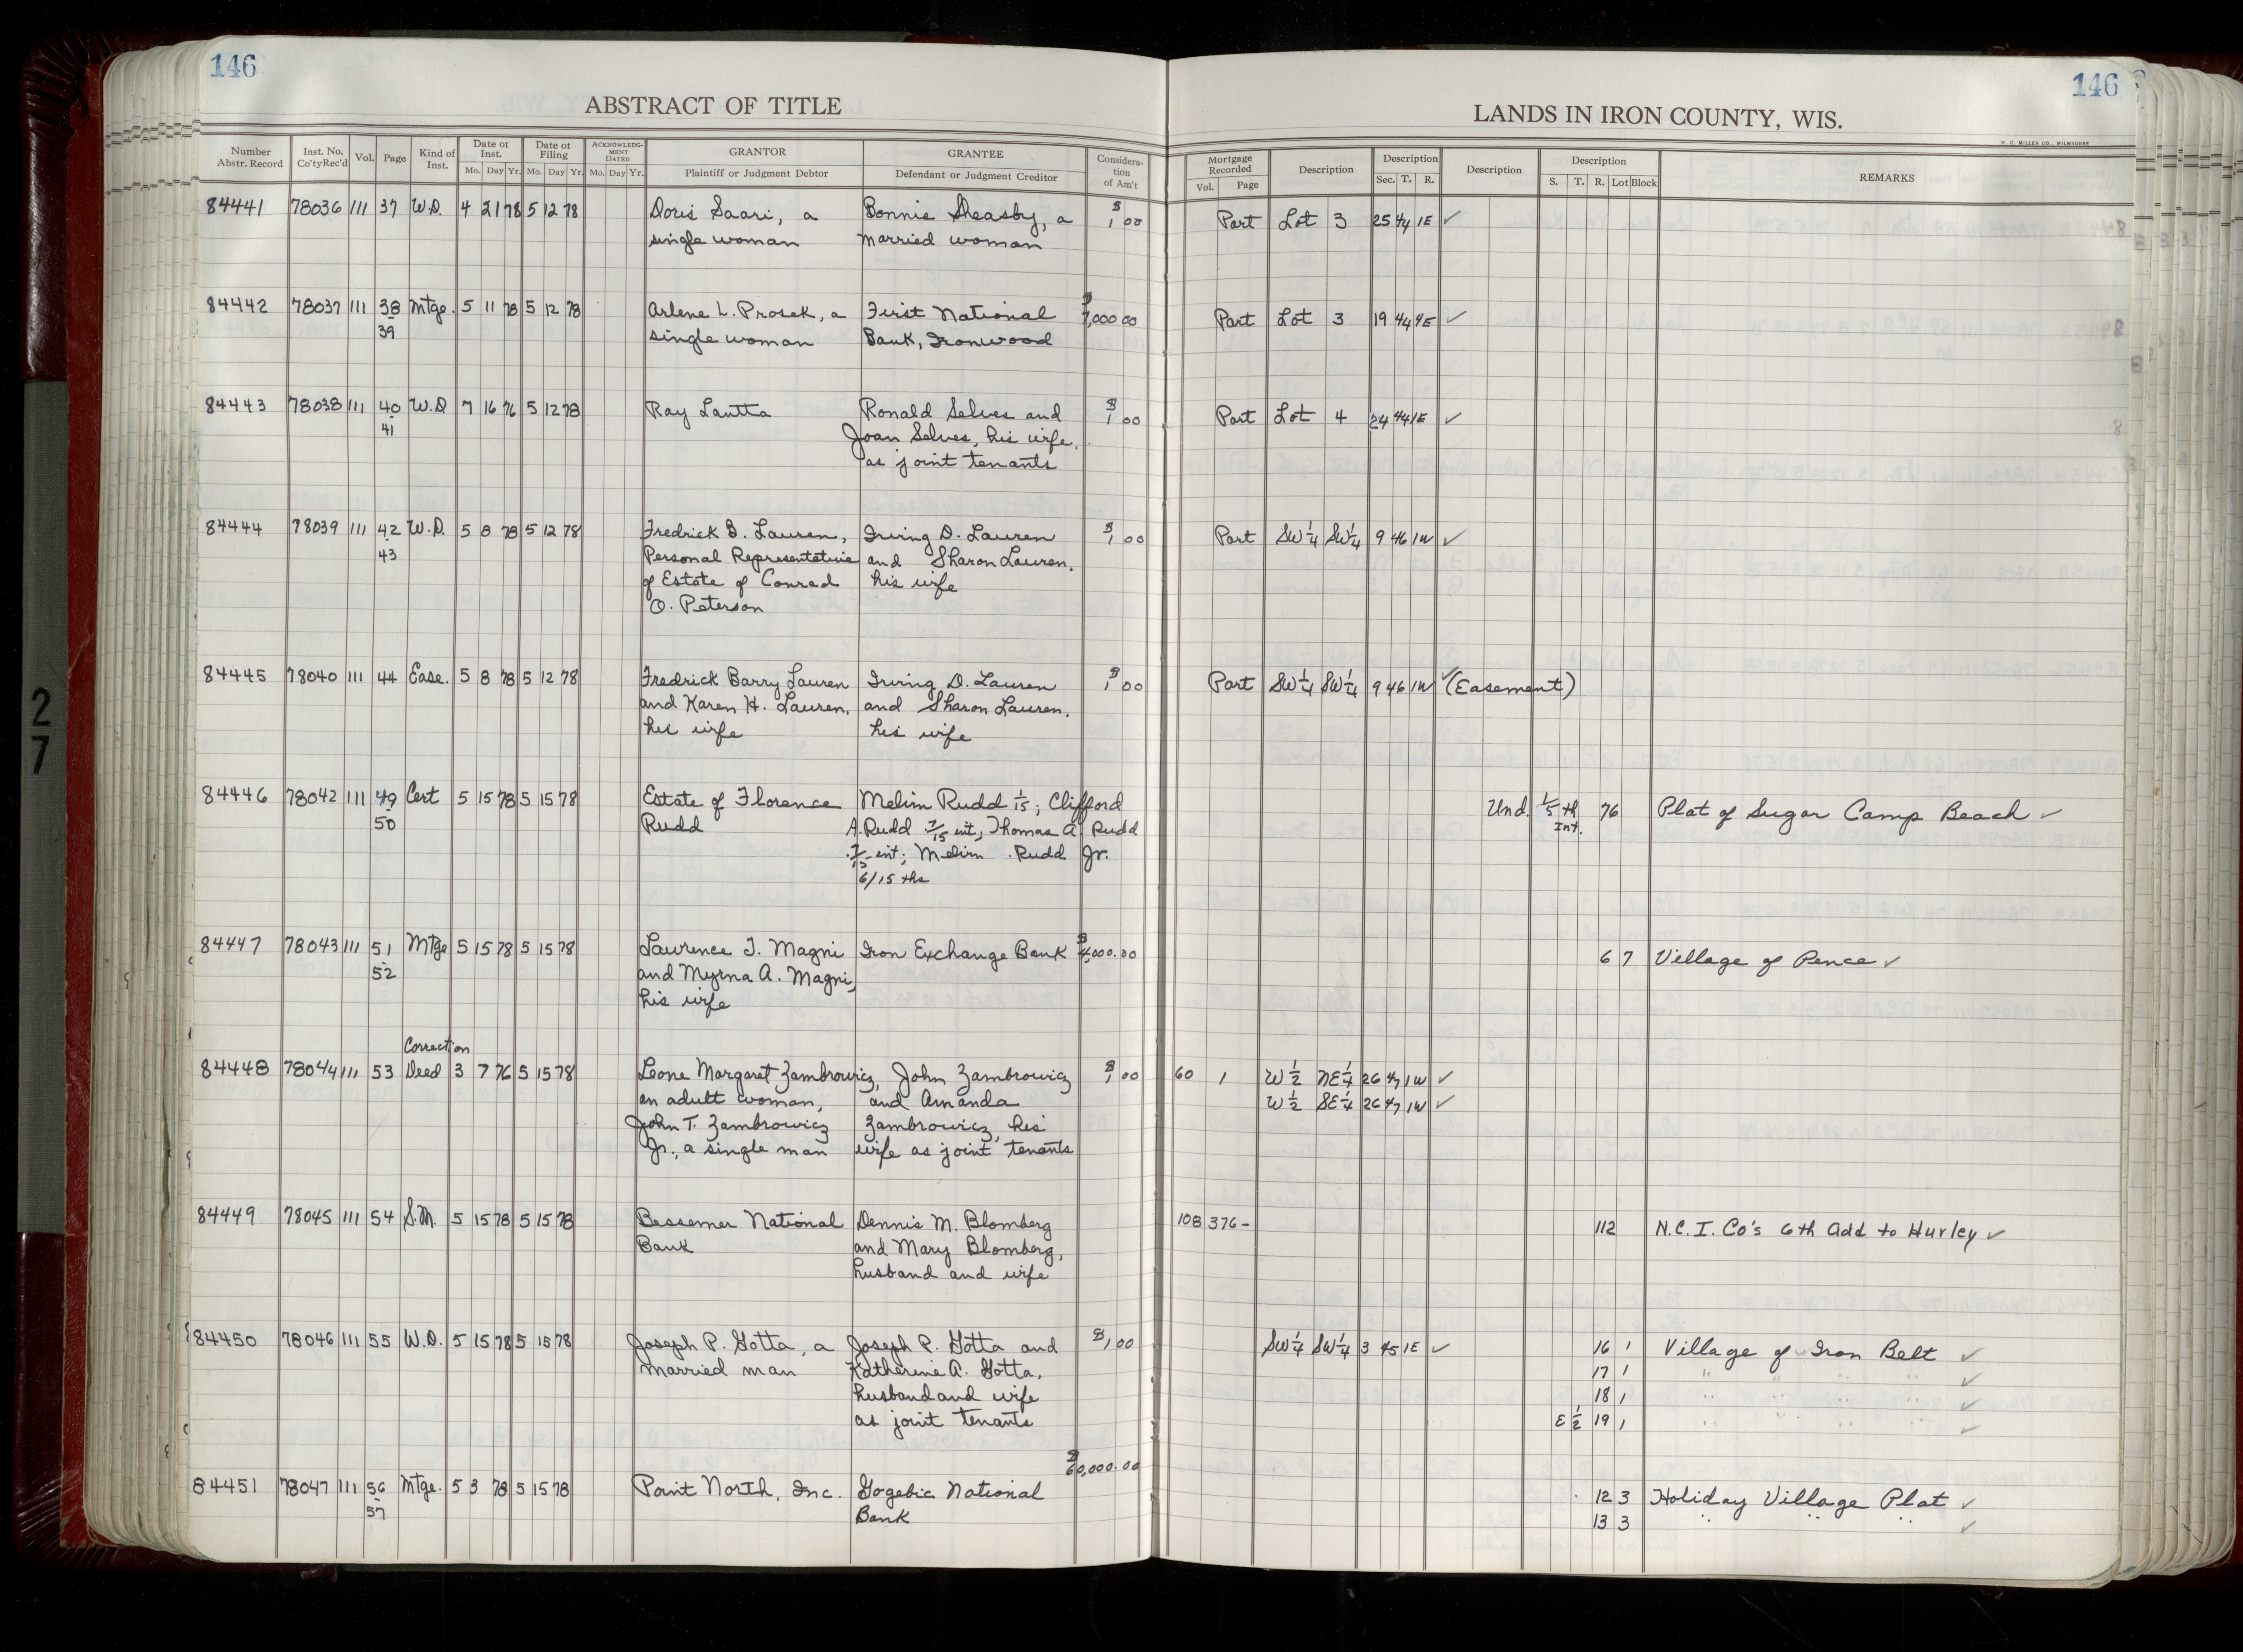 146
146
ABSTRACT OF TITLE
LANDS IN IRON COUNTY, WIS.
H. C. MILLER CO., MILWAUKEE
Number Abstr. Record Inst. No. Co'ty Rec'd Vol. Page Kind of Inst. Date of Inst. Mo. Day Yr. Date of Filing Mo. Day Yr. ACKNOWLEDGMENT DATED Mo. Day Yr. GRANTOR Plaintiff or Judgment Debtor GRANTEE Defendant or Judgment Creditor Consideration of Am't Mortgage Recorded Vol. Page Description Description Sec. T. R. Description Description S. T. R. Lot Block REMARKS
84441 78036 111 37 W.D. 4 21 78 5 12 78 Doris Saari, a Bonnie Sheasby, a $1 00 Part Lot 3 25 44 1E ✓
single woman married woman
84442 78037 111 38 Mtge. 5 11 78 5 12 78 Arlene L. Prosek, a First National $7,000 00 Part Lot 3 19 44 4E ✓
39 single woman Bank, Ironwood
84443 78038 111 40 W.D 7 16 76 5 12 78 Ray Lantta Ronald Selves and $1 00 Part Lot 4 24 44 1E ✓
41 Joan Selves, his wife,
as joint tenants
84444 78039 111 42 W.D. 5 8 78 5 12 78 Fredrick B. Lauren, Irving D. Lauren $1 00 Part SW 1/4 SW 1/4 9 46 1W ✓
43 Personal Representative and Sharon Lauren,
of Estate of Conrad his wife
O. Peterson
84445 78040 111 44 Ease. 5 8 78 5 12 78 Fredrick Barry Lauren Irving D. Lauren $1 00 Part SW 1/4 SW 1/4 9 46 1W ✓ (Easement)
and Karen H. Lauren, and Sharon Lauren,
his wife his wife
84446 78042 111 49 Cert 5 15 78 5 15 78 Estate of Florence Melim Rudd 1/15; Clifford Und. 1/5 th Int. 76 Plat of Sugar Camp Beach ✓
50 Rudd A. Rudd 7/15 int; Thomas A Rudd
int; Melim Rudd Jr.
6/15 ths
84447 78043 111 51 Mtge 5 15 78 5 15 78 Lawrence J. Magni Iron Exchange Bank $4,000.00 6 7 Village of Pence ✓
52 and Myrna A. Magni,
his wife
Correction
84448 78044 111 53 Deed 3 7 76 5 15 78 Leone Margaret Zambrowicz, John Zambrowicz $1 00 60 1 W 1/2 NE 1/4 26 47 1W ✓
an adult woman, and Amanda W 1/2 SE 1/4 26 47 1W ✓
John T. Zambrowicz Zambrowicz, his
Jr., a single man wife as joint tenants
84449 78045 111 54 S.M. 5 15 78 5 15 78 Bessemer National Dennis M. Blomberg 108 376- 112 N.C.I. Co's 6th Add to Hurley ✓
Bank and Mary Blomberg,
husband and wife
84450 78046 111 55 W.D. 5 15 78 5 15 78 Joseph P. Gotta, a Joseph P. Gotta and $1 00 SW 1/4 SW 1/4 3 45 1E ✓ 16 1 Village of Iron Belt ✓
married man Katherine A. Gotta, 17 1 " " " " ✓
husband and wife 18 1 " " " " ✓
as joint tenants E 1/2 19 1 " " " " ✓
$60,000.00
84451 78047 111 56 Mtge. 5 3 78 5 15 78 Point North, Inc. Gogebic National 12 3 Holiday Village Plat ✓
57 Bank 13 3 " " " ✓
27